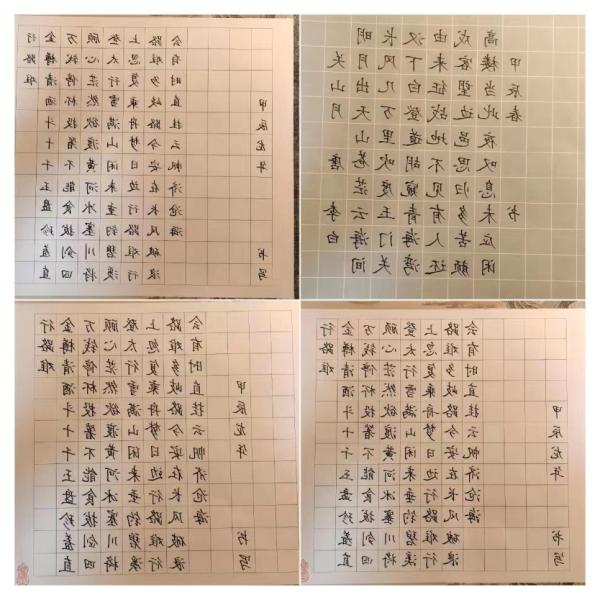 行路难
金樽清酒斗十千玉盘珍羞直
万钱停杯投箸不能食拔剑四
顾心茫然欲渡黄河冰塞川将
登太行雪满山闲来垂钓碧溪
上忽复乘舟梦日边行路难行
路难多歧路今安在长风破浪
会有时直挂云帆济沧海
甲辰龙年 书写
关山月 唐 李白
明月出天山苍茫云海间
长风几万里吹度玉门关
汉下白登道胡窥青海湾
由来征战地不见有人还
戍客望边邑思归多苦颜
高楼当此夜叹息未应闲
甲辰春 书
行路难
金樽清酒斗十千玉盘珍羞直
万钱停杯投箸不能食拔剑四
顾心茫然欲渡黄河冰塞川将
登太行雪满山闲来垂钓碧溪
上忽复乘舟梦日边行路难行
路难多歧路今安在长风破浪
会有时直挂云帆济沧海
甲辰龙年 书写
行路难
金樽清酒斗十千玉盘珍羞直
万钱停杯投箸不能食拔剑四
顾心茫然欲渡黄河冰塞川将
登太行雪满山闲来垂钓碧溪
上忽复乘舟梦日边行路难行
路难多歧路今安在长风破浪
会有时直挂云帆济沧海
甲辰龙年 书写